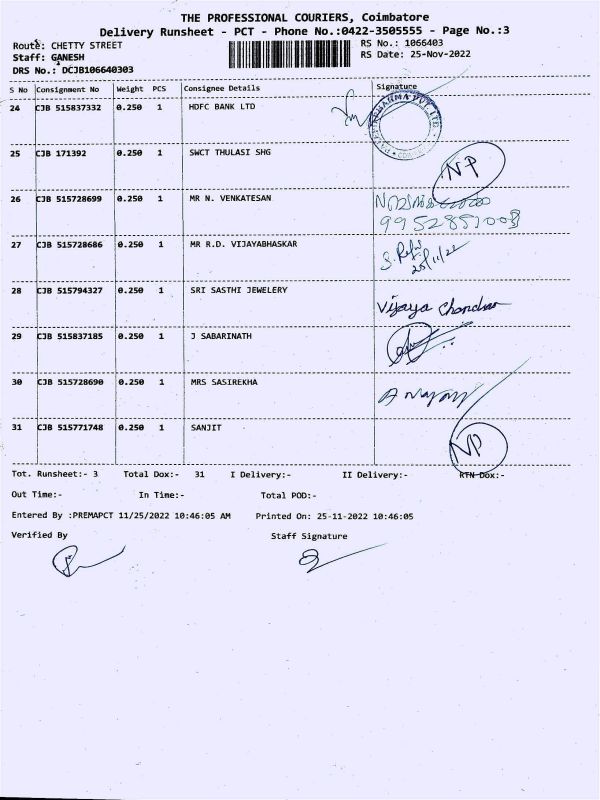 THE PROFESSIONAL COURIERS, Coimbatore
Delivery Runsheet - PCT - Phone No.:0422-3505555 - Page No.:3
Route: CHETTY STREET
RS No.: 1066403
Staff: GANESH
RS Date: 25-Nov-2022
DRS No.: DCJB106640303
S No Consignment No Weight PCS Consignee Details Signature
24 CJB 515837332 0.250 1 HDFC BANK LTD
25 CJB 171392 0.250 1 SWCT THULASI SHG NP
26 CJB 515728699 0.250 1 MR N. VENKATESAN
27 CJB 515728686 0.250 1 MR R.D. VIJAYABHASKAR
25/11/22
28 CJB 515794327 0.250 1 SRI SASTHI JEWELERY Vijaya Chandran
29 CJB 515837185 0.250 1 J SABARINATH
30 CJB 515728690 0.250 1 MRS SASIREKHA
31 CJB 515771748 0.250 1 SANJIT NP
Tot. Runsheet:- 3 Total Dox:- 31 I Delivery:- II Delivery:- RTN Dox:-
Out Time:- In Time:- Total POD:-
Entered By :PREMAPCT 11/25/2022 10:46:05 AM Printed On: 25-11-2022 10:46:05
Verified By Staff Signature